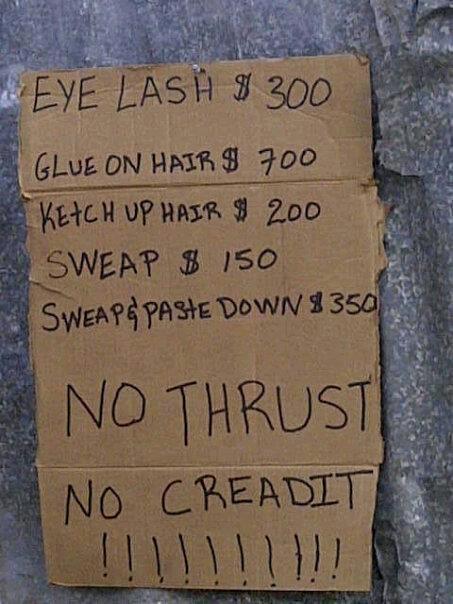 EYE LASH $ 300
GLUE ON HAIR $ 700
KETCH UP HAIR $ 200
SWEAP $ 150
SWEAP & PASTE DOWN $ 350
NO THRUST
NO CREADIT
!!!!!!!!!!